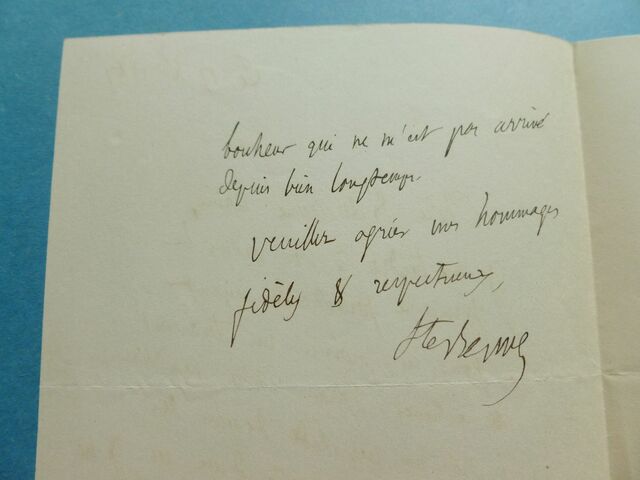 bonheur qui ne m'est pas arrivé
depuis bien longtemps
veuillez agréer mes hommages
fidèles & respectueux,
Ste Beuve